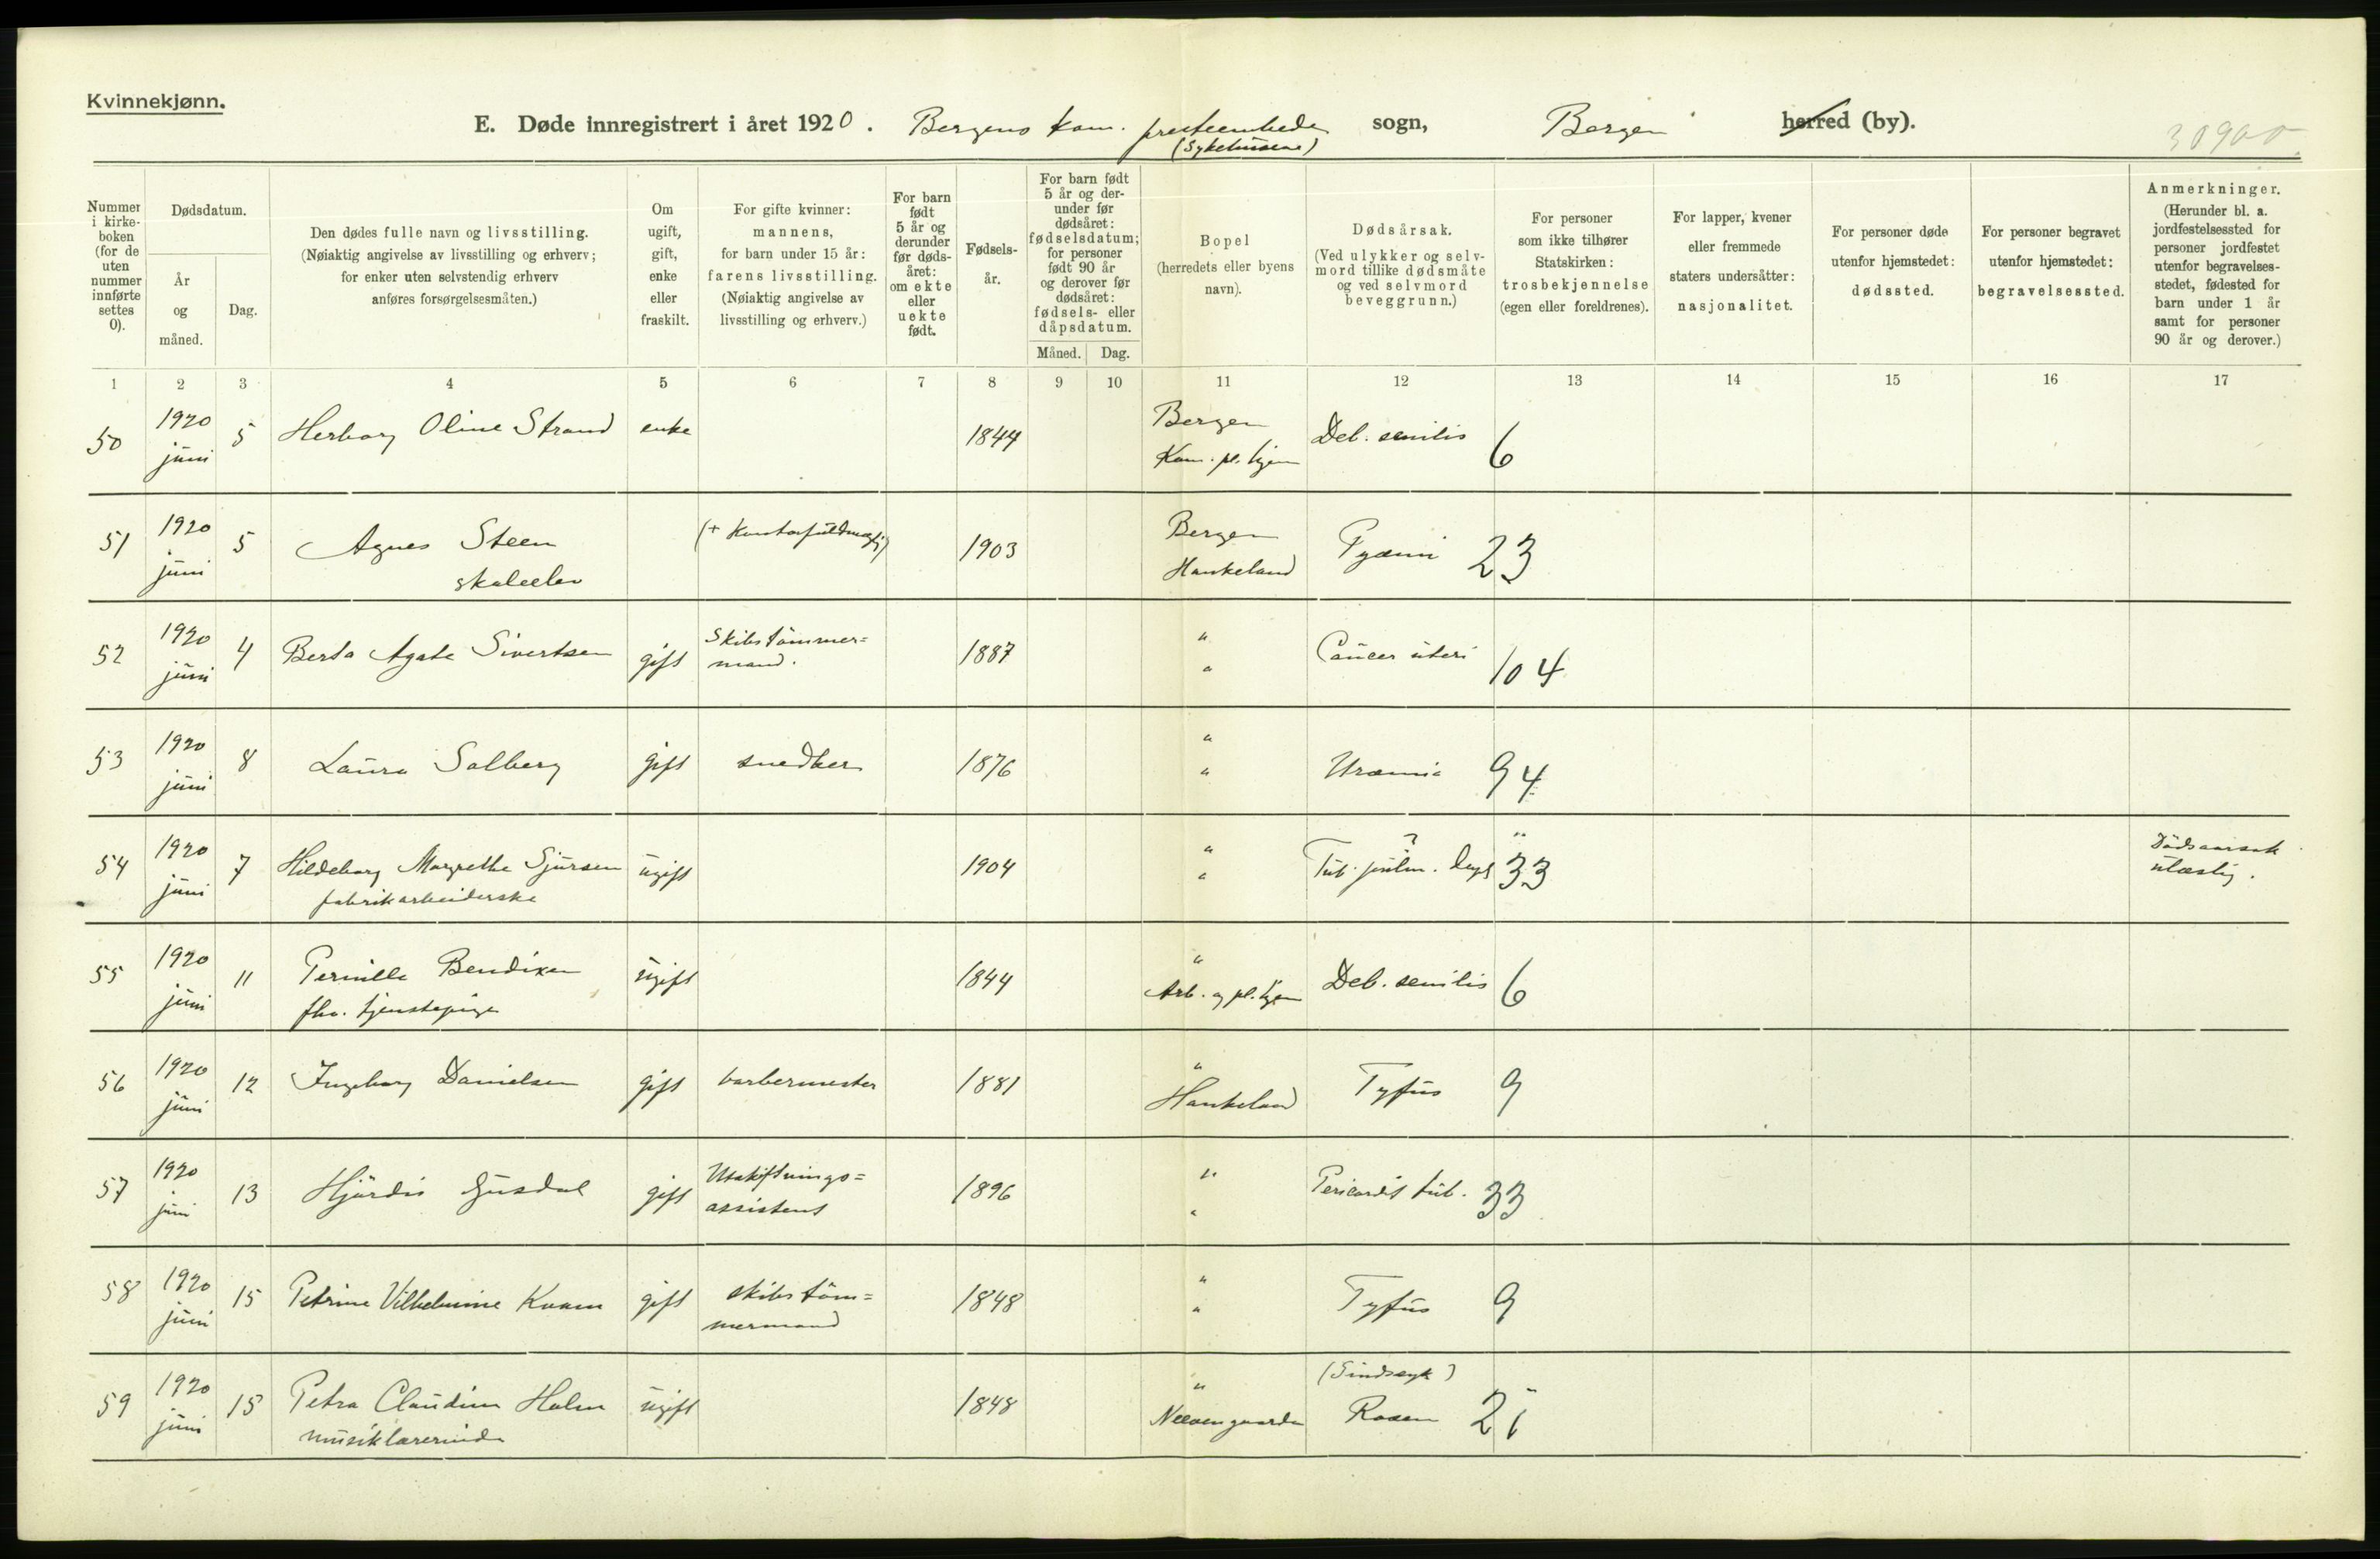 Kvinnekjønn.
E. Døde innregistrert i året 1920. Bergens kom. presteembede sogn, Bergen herred (by).
(Sykehusene)
30900
Nummer i kirkeboken (for de uten nummer innførte settes 0).
Dødsdatum.
År og måned.
Dag.
Den dødes fulle navn og livsstilling.
(Nøiaktig angivelse av livsstilling og erhverv;
for enker uten selvstendig erhverv
anføres forsørgelsesmåten.)
Om ugift, gift, enke eller fraskilt.
For gifte kvinner:
mannens,
for barn under 15 år:
farens livsstilling.
(Nøiaktig angivelse av
livsstilling og erhverv.)
For barn født 5 år og derunder før dødsåret: om ekte eller uekte født.
Fødselsår.
For barn født 5 år og derunder før dødsåret: fødselsdatum; for personer født 90 år og derover før dødsåret: fødsels- eller dåpsdatum.
Måned.
Dag.
Bopel
(herredets eller byens
navn).
Dødsårsak.
(Ved ulykker og selvmord tillike dødsmåte og ved selvmord beveggrunn.)
For personer
som ikke tilhører
Statskirken:
trosbekjennelse
(egen eller foreldrenes).
For lapper, kvener
eller fremmede
staters undersåtter:
nasjonalitet.
For personer døde
utenfor hjemstedet:
dødssted.
For personer begravet
utenfor hjemstedet:
begravelsessted.
Anmerkninger.
(Herunder bl. a.
jordfestelsessted for
personer jordfestet
utenfor begravelses-
stedet, fødested for
barn under 1 år
samt for personer
90 år og derover.)
1 2 3 4 5 6 7 8 9 10 11 12 13 14 15 16 17
50 1920 juni 5 Herborg Oline Strand enke 1844 Bergen Kom. pl. hjem Deb. senilis 6
51 1920 juni 5 Agnes Steen skoleelev (+ Kontorfuldmægtig) 1903 Bergen Haukeland Pyæmi 23
52 1920 juni 4 Berta Agate Sivertsen gift Skibstömmer= mand. 1887 " " Cancer uteri 104
53 1920 juni 8 Laura Solberg gift snedker 1876 " " Uræmia 94
54 1920 juni 7 Hildeborg Margrethe Sjursen fabrikarbeiderske ugift 1904 " " Tub. pulm. ? 33 Dödsaarsak ulæslig.
55 1920 juni 11 Pernille Bendixen fhv. tjenestepige ugift 1844 " Arb. og pl. hjem Deb. senilis 6
56 1920 juni 12 Ingeborg Danielsen gift barbermester 1881 " Haukeland Tyfus 9
57 1920 juni 13 Hjördis Gusdal gift Utskiftnings= assistent 1896 " " Pericardit tub. 33
58 1920 juni 15 Petrine Vilhelmine Kvam gift skibstöm= mermand 1848 " " Tyfus 9
59 1920 juni 15 Petra Claudine Holm musiklærerinde ugift 1848 " Neevengaarden (Sindssyk) Rosen 21